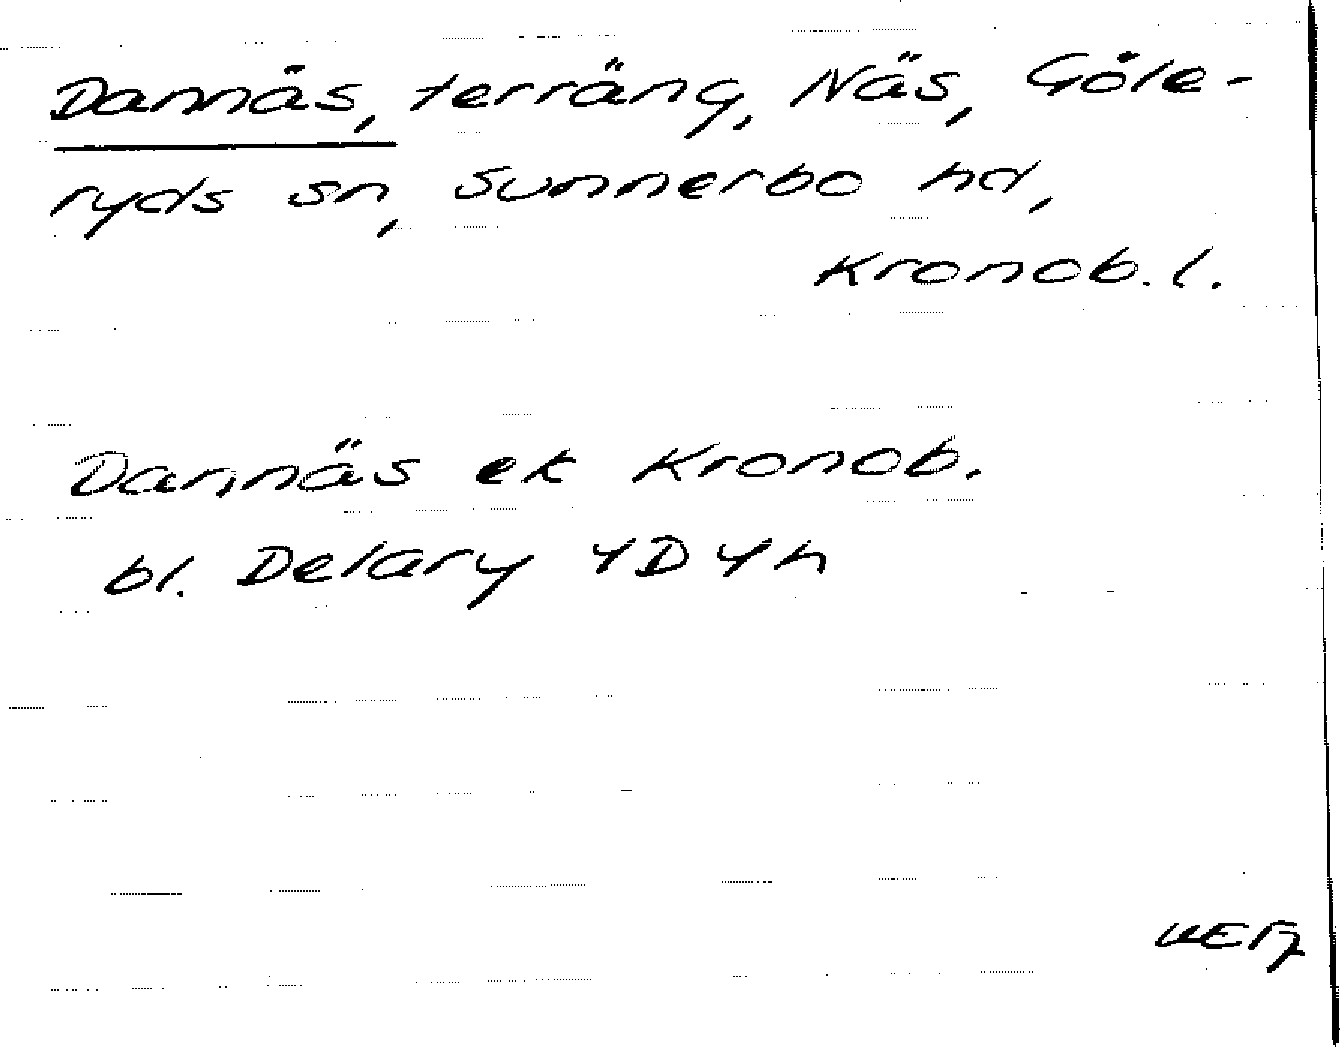 Dannäs, terräng, Näs, Göte-
ryds sn, Sunnerbo hd,
Kronob. l.
Dannäs ek Kronob.
bl. Delary 4D4h